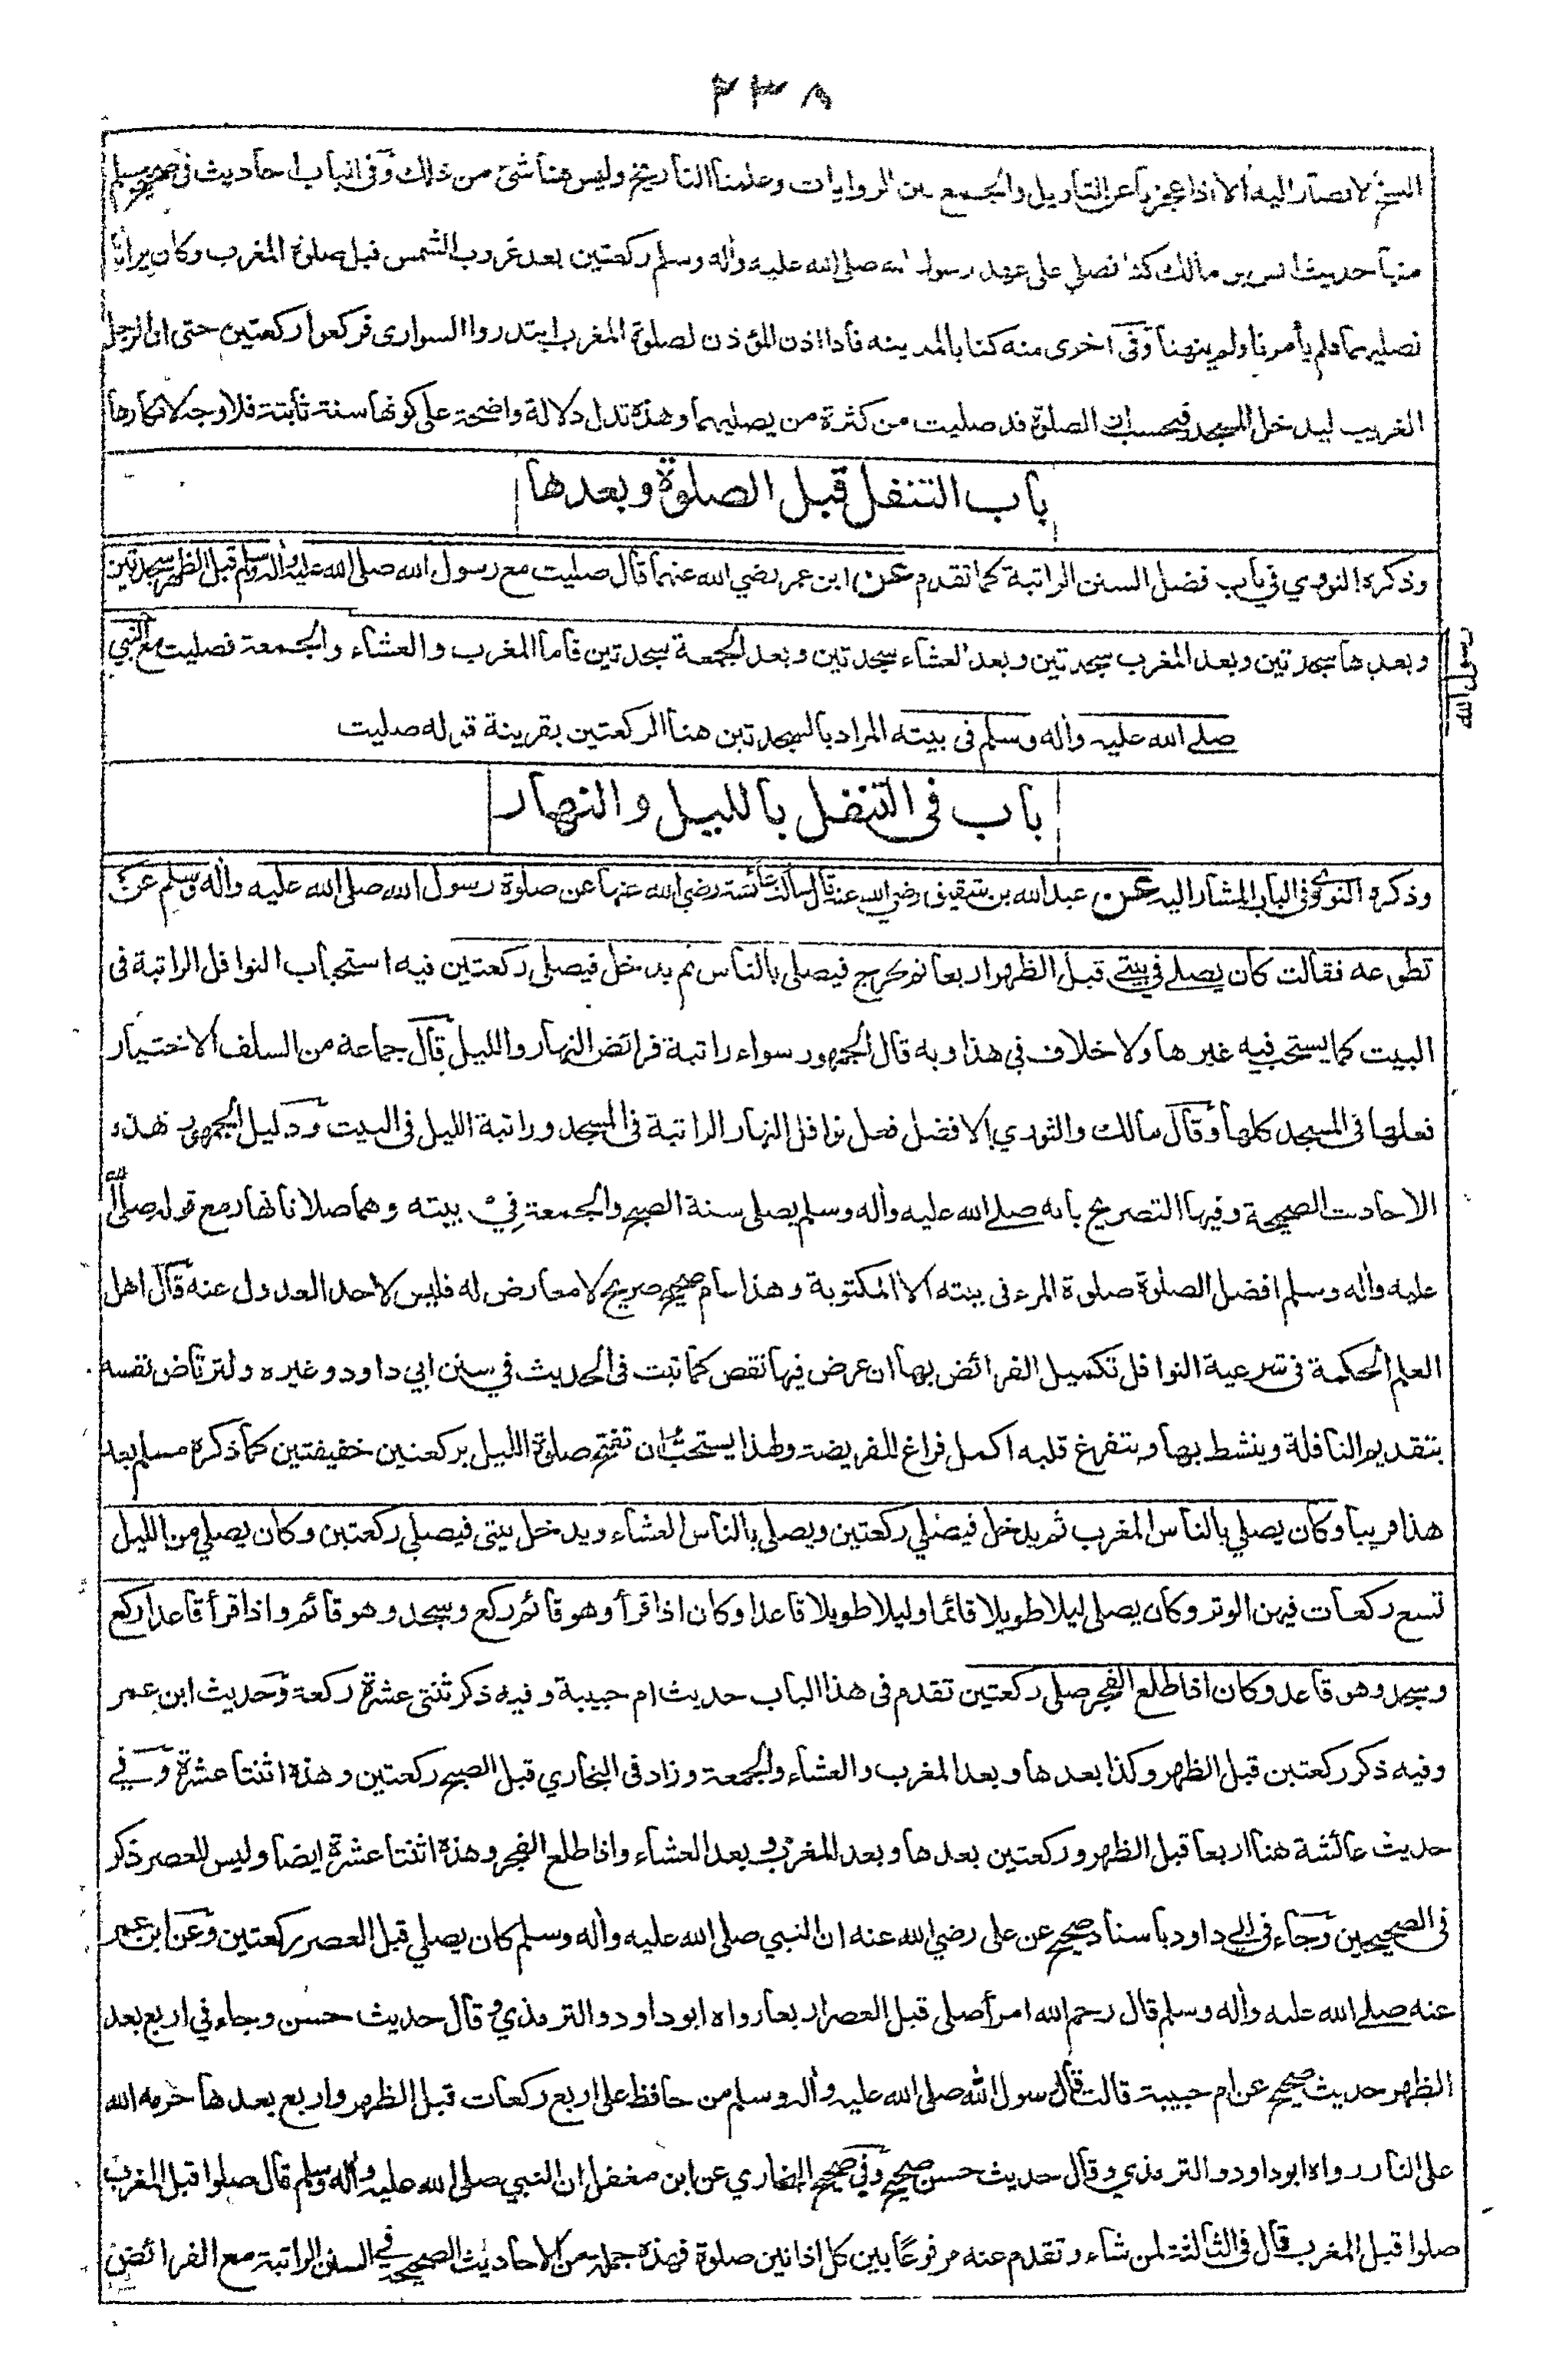 ٢٣٨
النسخ لا يصار اليه الا اذا عجزنا عن التاويل والجمع بين الروايات وعلمنا التاريخ وليس هنا شئ من ذلك وفى الباب احاديث فى صحيح مسلم
منها حديث انس بن مالك كنا نصلي على عهد رسول الله صلى الله عليه واله وسلم ركعتين بعد غروب الشمس قبل صلوة المغرب وكان يرانا
نصليهما فلم يأمرنا ولم ينهنا وفى اخرى منه كنا بالمدينه فاذا اذن المؤذن لصلوة المغرب ابتدروا السوارى فركعوا ركعتين حتى ان الرجل
الغريب ليدخل المسجد فيحسب ان الصلوة قد صليت من كثرة من يصليهما وهذه تدل دلالة واضحة على كونها سنة ثابتة فلا وجه لانكارها
باب التنفل قبل الصلوة وبعدها
وذكره النووي في باب فضل السنن الراتبة كما تقدم عن ابن عمر رضي الله عنهما قال صليت مع رسول الله صلى الله عليه واله وسلم قبل الظهر سجدتين
وبعدها سجدتين وبعد المغرب سجدتين وبعد العشاء سجدتين وبعد الجمعة سجدتين فاما المغرب والعشاء والجمعة فصليت مع النبي
رسول الله
صلے الله عليه واله وسلم فى بيته المراد بالسجدتين هنا الركعتين بقرينة قوله صليت
باب فى التنفل بالليل والنهار
وذكره النووي فى الباب المشار اليه عن عبد الله بن شقيق رضي الله عنه قال سالت عائشة رضي الله عنها عن صلوة رسول الله صلى الله عليه واله وسلم عن
تطوعه فقالت كان يصلے في بيتے قبل الظهر اربعا ثم يخرج فيصلى بالناس ثم يدخل فيصلى ركعتين فيه استحباب النوافل الراتبة فى
البيت كما يستحب فيه غيرها ولا خلاف في هذا وبه قال الجمهور سواء راتبة فرائض النهار والليل قال جماعة من السلف الاختيار
فعلها فى المسجد كلها وقال مالك والثوري الافضل فعل نوافل النهار الراتبة فى المسجد وراتبة الليل فى البيت ودليل الجمهور هذه
الاحاديث الصحيحة وفيها التصريح بانه صلے الله عليه واله وسلم يصلى سنة الصبح والجمعة في بيته وهما صلاتا نهار مع قوله صلى الله
عليه واله وسلم افضل الصلوة صلوة المرء فى بيته الا المكتوبة وهذا عام صحيح صريح لا معارض له فليس لاحد العدول عنه قال اهل
العلم الحكمة فى شرعية النوافل تكميل الفرائض بها ان عرض فيها نقص كما ثبت فى الحديث في سنن ابي داود وغيره ولترتاض نفسه
بتقديم النافلة وينشط بها ويتفرغ قلبه اكمل فراغ للفريضة ولهذا يستحب ان تفتتح صلوة الليل بركعتين خفيفتين كما ذكره مسلم بعد
هذا قريبا وكان يصلي بالناس المغرب ثم يدخل فيصلي ركعتين ويصلى بالناس العشاء ويدخل بيتى فيصلي ركعتين وكان يصلي من الليل
تسع ركعات فيهن الوتر وكان يصلى ليلا طويلا قائما وليلا طويلا قاعدا وكان اذا قرأ وهو قائم ركع وسجد وهو قائم واذا قرأ قاعدا ركع
وسجد وهو قاعد وكان اذا طلع الفجر صلى ركعتين تقدم فى هذا الباب حديث ام حبيبة وفيه ذكر ثنتى عشرة ركعة وحديث ابن عمر
وفيه ذكر ركعتين قبل الظهر وكذا بعدها وبعد المغرب والعشاء والجمعة وزاد فى البخاري قبل الصبح ركعتين وهذه اثنتا عشرة وفي
حديث عائشة هنا اربعا قبل الظهر وركعتين بعدها وبعد المغرب وبعد العشاء واذا طلع الفجر وهذه اثنتا عشرة ايضا وليس للعصر ذكر
فى الصحيحين وجاء فى ابي داود باسناد صحيح عن على رضي الله عنه ان النبي صلى الله عليه واله وسلم كان يصلي قبل العصر ركعتين وعن ابن عمر
عنه صلے الله عليه واله وسلم قال رحم الله امرأ صلى قبل العصر اربعا رواه ابو داود والترمذي وقال حديث حسن وجاء في اربع بعد
الظهر حديث صحيح عن ام حبيبة قالت قال رسول الله صلى الله عليه واله وسلم من حافظ على اربع ركعات قبل الظهر واربع بعدها حرمه الله
على النار رواه ابو داود والترمذي وقال حديث حسن صحيح وفى صحيح البخاري عن ابن مغفل ان النبي صلى الله عليه واله وسلم قال صلوا قبل المغرب
صلوا قبل المغرب قال فى الثالثة لمن شاء وتقدم عنه مرفوعا بين كل اذانين صلوة فهذه جملة من الاحاديث الصحيحة في السنن الراتبة مع الفرائض